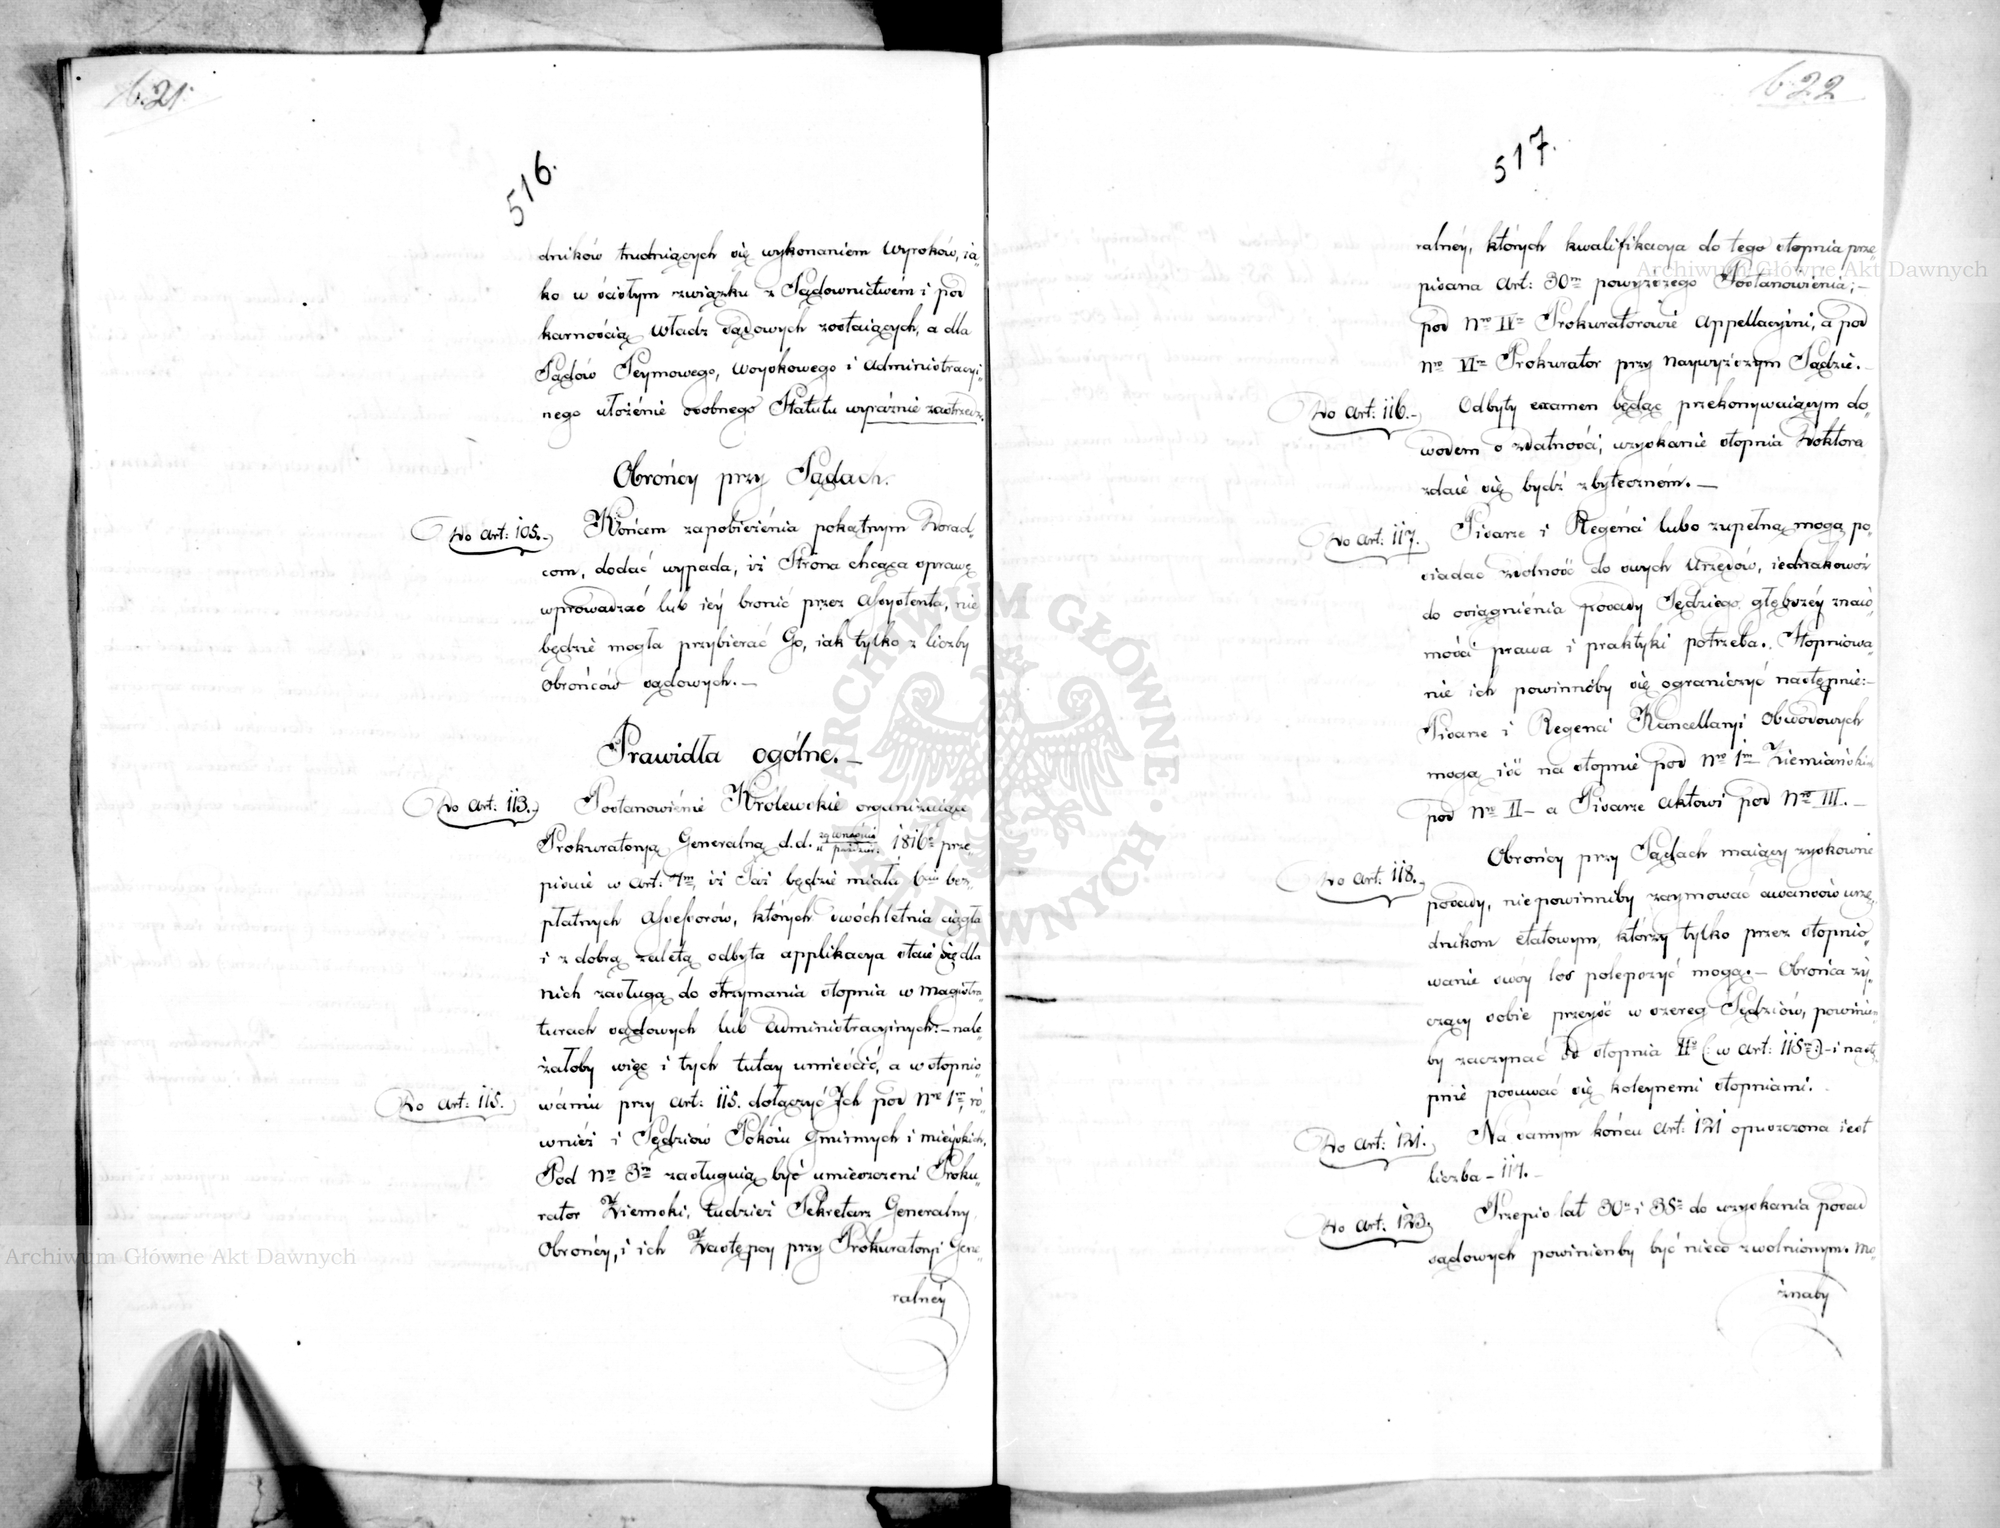 621.
516.
dników trudniących się wykonaniem Wyroków, ia„
ko w ścisłym związku z Sądownictwem i pod
karnością Władz sądowych zostaiących, a dla
Sądów Seymowego, Woyskowego i Administracyi„
nego ułożenie osobnego Statutu wyraźnie zastrzedz.
Obrońcy przy Sądach.
Do Art: 105.
Końcem zapobieżenia pokątnym Dorad„
com, dodać wypada, iż Strona chcąca sprawę
wprowadzać lub iéy bronić przez Assystenta, nie
będzie mogła przybierać Go, iak tylko z liczby
Obrońców sądowych.—
Prawidła ogólne.—
Do Art: 113.
Postanowiénie Królewskie organizuiące
Prokuratoryą Generalną d.d. 29 Września / paździer: 1816r prze„
pisuie w Art: 7m, iż Taż będzie miała 6ciu bez„
płatnych Assessorów, których dwóchletnia ciągła
i z dobrą zaletą odbyta applikacya staie się dla
nich zasługą do otrzymania stopnia w magistra„
turach sądowych lub Administracyinych:—nale„
żałoby więc i tych tutay umieścić, a w stopnio„
Do Art: 115.
waniu przy Art: 115. dołączyć Ich pod Nro 1m, ró„
wnież i Sędziów Pokóiu Gminnych i mieyskich.
Pod Nro 3m zasługuią być umieszczeni Proku„
rator Ziemski, tudzież Sekretarz Generalny,
Obrońcy, i ich Zastępcy przy Prokuratoryi Gene„
ralnéy
622
517.
ralnéy, których kwalifikacya do tego stopnia prze„
pisana Art: 30m powyższego Postanowienia;—
pod Nro IVm Prokuratorowie Appellacyini, a pod
Nro VIm Prokurator przy Naywyższym Sądzie.—
Do Art: 116.
Odbyty examen będąc przekonywaiącym do„
wodem o zdatności, uzyskanie stopnia Doktora
zdaie się bydź zbyteczném.—
Do Art: 117.
Pisarze i Regénci lubo zupełną mogą po„
siadać zdolność do swych Urzędów, iednakowoż
do osiągniénia posady Sędziego, głębszéy znaio„
mości prawa i praktyki potrzeba. Stopniowa„
nie ich powinnoby się ograniczyć następnie:—
Pisarze i Regenci Kancellaryi Obwodowych
mogą iść na stopnie pod Nro 1m Ziemiańskich
pod Nro II— a Pisarze Aktowi pod Nro III.—
Do Art: 118.
Obrońcy przy Sądach maiący zyskowne
posady, niepowinniby zaymować awansów urzę„
dnikom etatowym, którzy tylko przez stopnio„
wanie swóy los polepszyć mogą.— Obrońca ży„
czący sobie przeyść w szereg Sędziów, powinien„
by zaczynać od stopnia IIo (: w Art: 115m:)—i nastę„
pnie posuwać się koleynemi stopniami.
Do Art: 121.
Na samym końcu Art: 121 opuszczona iest
liczba—117.—
Do Art: 123.
Przepis lat 30u i 35u do uzyskania posad
sądowych powinienby być nieco zwolnionym. Mo„
żnaby
Archiwum Główne Akt Dawnych
Archiwum Główne Akt Dawnych
ARCHIWUM GŁÓWNE AKT DAWNYCH